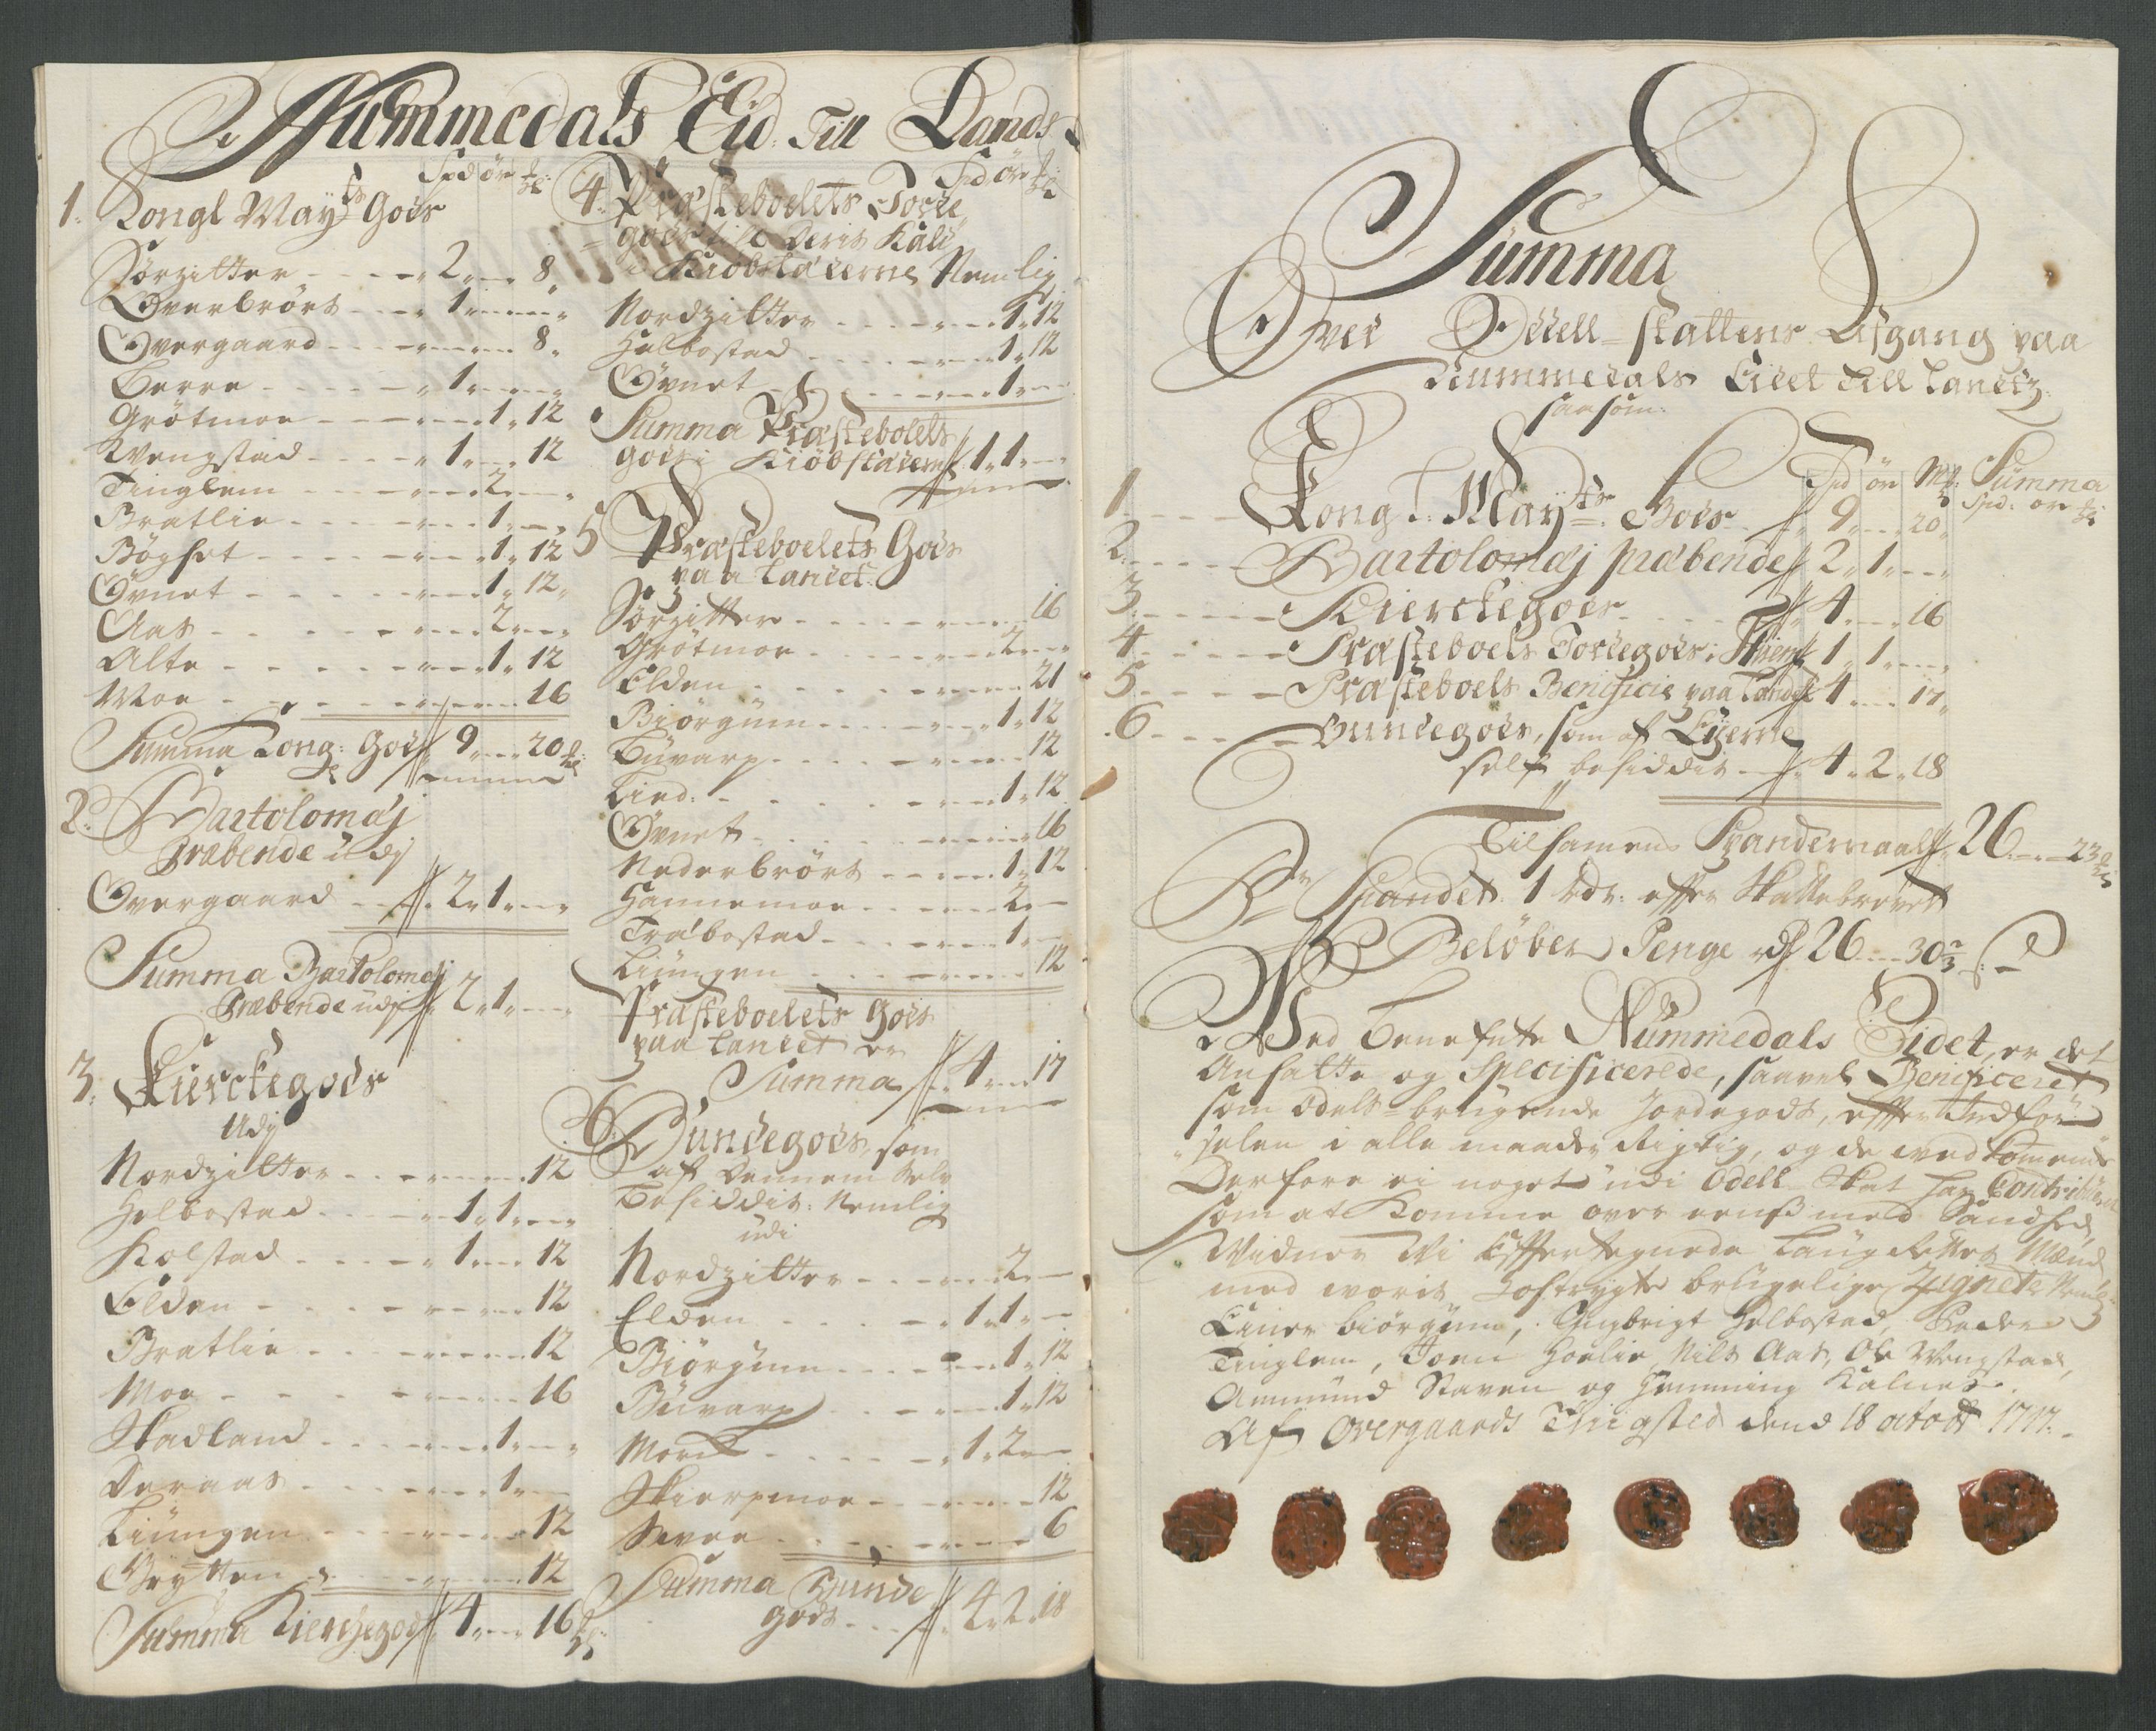 Nummedals Eid Till Lands
Spd ör
1. Kongl May.ts Goes
Sörzitter 2 8
Overbrört 1
Overgaard 8
Berre 1
Grötmoe 1 12
Wengstad 1 12
Tinglem 2
Bratlie 1
Böghet 1 12
Övnet 1 12
Aas 2
Alte 1 12
Moe 16
Summa Kong: Goes 9 20
2. Bartolomæj
Præbende udj
Overgaard 2 1
Summa Bartolomæj
Præbende udj 2 1
3. Kierckegods
Udj
Nordzitter 12
Helbostad 1 1
Kolstad 1 12
Elden 12
Bratlie 12
Moe 16
Skadland 1
Deraas 1
Liüngen 12
Grytten 12
Summa Kierchegods 4 16
Spd ör
4. Præsteboelets Jorde
goeds
Kiöbstæderne Nemlig
Nordzitter 1 12
Helbostad 1 12
Övnet 1
Summa Præstebolets
goeds i Kiöbstæderne 1 1
5 Præsteboelets Goes
paa Landet
Sörzitter 16
Grötmoe 2
Elden 21
Biörgüm 1 12
Büvarp 12
Lied 1 12
Övnet 16
Nederbrört 1 12
Hannemoe 2
Træbostad 1
Liüngen 12
Præsteboelets Goes
paa Landet er
Summa 4 17
6. Bundegoes, som
af Dennem Selv
Besiddis: Nemlig
udi
Nordzitter 2
Elden 1 1
Biörgüm 1 12
Büvarp 1 12
Morch 1 2
Skierpmoe 12
Sevee 6
Summa Bunde
gods 4 2 18
Summa
Over Odell-skattens Afgang paa
Nummedals Eidet Till Landtz
saasom:
Spd ör Mk: Summa
Spd: ör
1 Kongl: May.ts Goes 9 20
2 Bartolomæj præbende 2 1
3 Kierckegoes 4 16
4 Præsteboels Jordegoes i Thiem 1 1
5 Præsteboels Benificie paa Landet 4 17
6 Bundegoes, som af Eyerne
self besiddes 4 2 18
Tilsamen Spandemaall 26 23
Pr Spandet 1 rdr: effter Skattebrevet
Belöber Penge rdr 26 30 2/3
Ved Benefnte Nummedals Eidet, er det
Ansatte og Specificerede, saavel Benificeret
som odels-brugende Jordegods, effter Indför
selen i alle maader Rigtig, og de vedkomende
Derfore ei noget udi Odell Skat har Contribueret
som at komme overeens med Sandhed,
Vidner Wi Effertegnede Laugrettes Mænd
med voris hostrygte brügelige Zigneter Nemlig
Einer Biörgüm, Engbrigt Helbostad, Peder
Tinglem, Joen Hoelie, Nils Aas, Ole Wengstad,
Ammund Staven og Hemming Kalnes.
Af Overgaards Tingsted dend 18 octobr 1717.